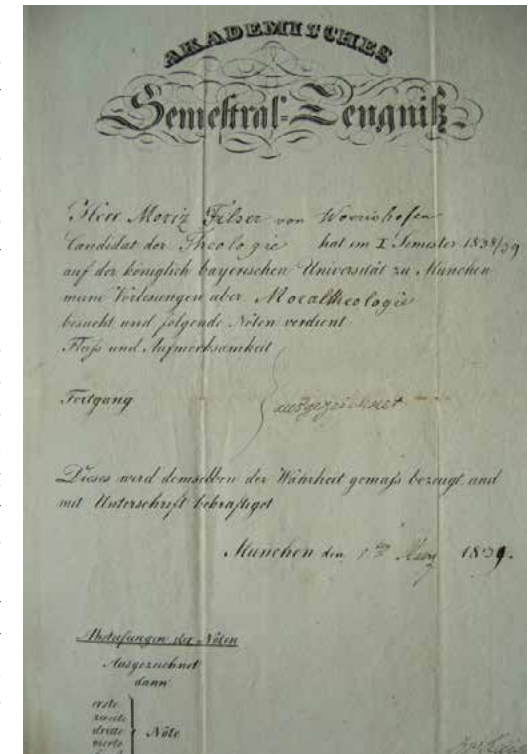 AKADEMISCHES
Semestral=Zeugniß
Herr Moriz Filser von Woerishofen
Candidat der Theologie hat im I Semester 1838/39
auf der königlich bayerischen Universität zu München
meine Vorlesungen über Moraltheologie
besucht und folgende Noten verdient
Fleiß und Aufmerksamkeit
Fortgang
ausgezeichnet
Dieses wird demselben der Wahrheit gemäß bezeugt und
mit Unterschrift bekräftiget
München den 1ten März 1839.
Abstufungen der Noten
Ausgezeichnet
dann
erste
zweite
dritte
vierte
Note